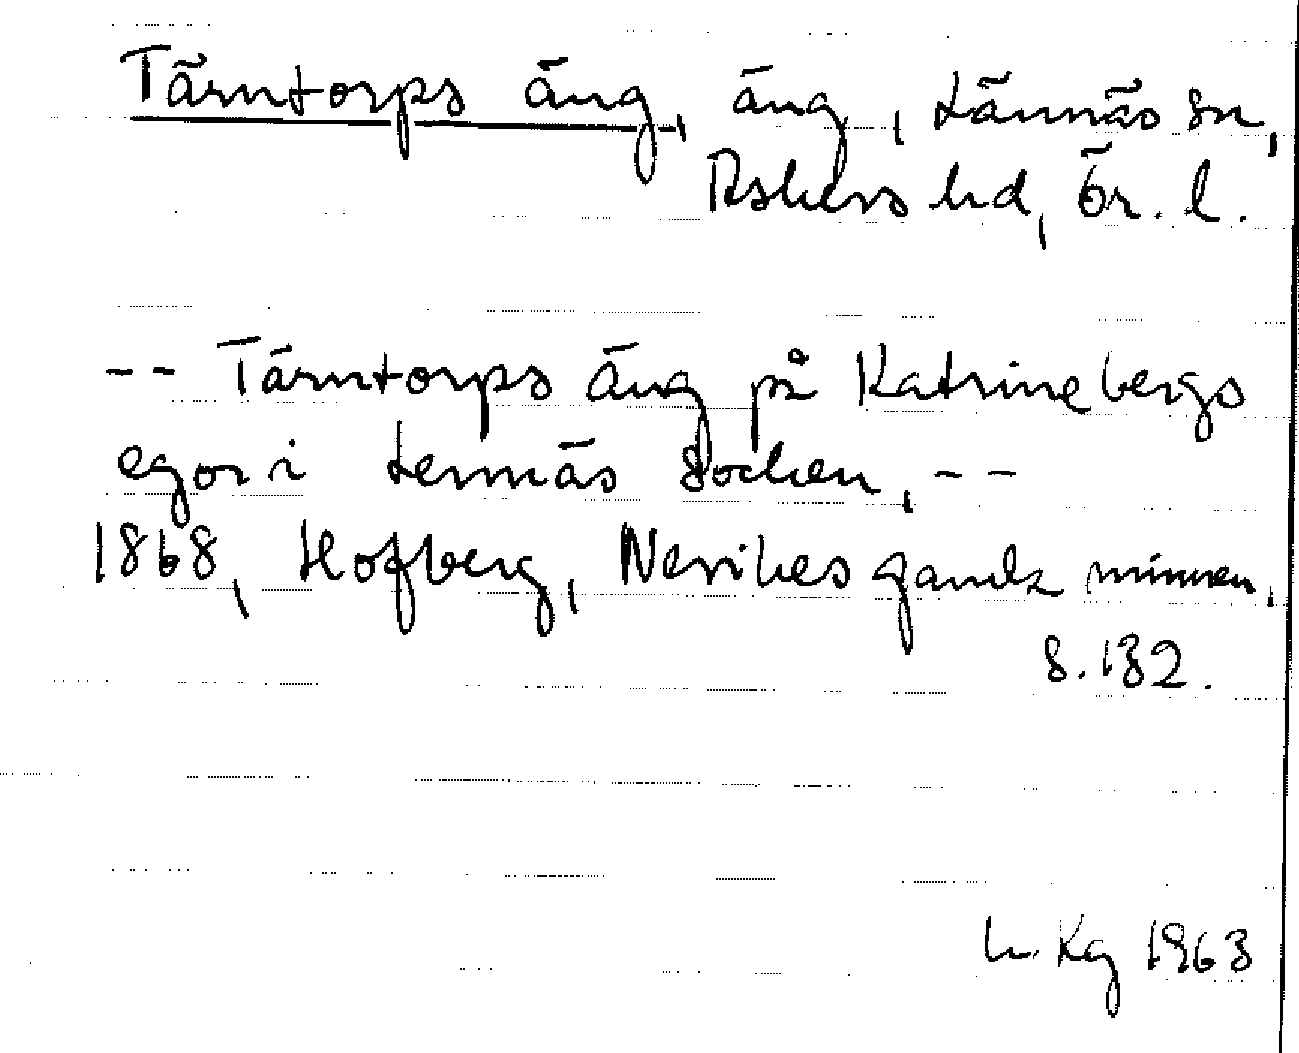 Tärntorps äng, äng, Lännäs sn,
Askers hd, Ör. l.
-- Tärntorps äng på Katrinebergs
egor i Lennäs socken, --
1868, Hofberg, Nerikes gamla minnen,
s. 182.
Kg 1963